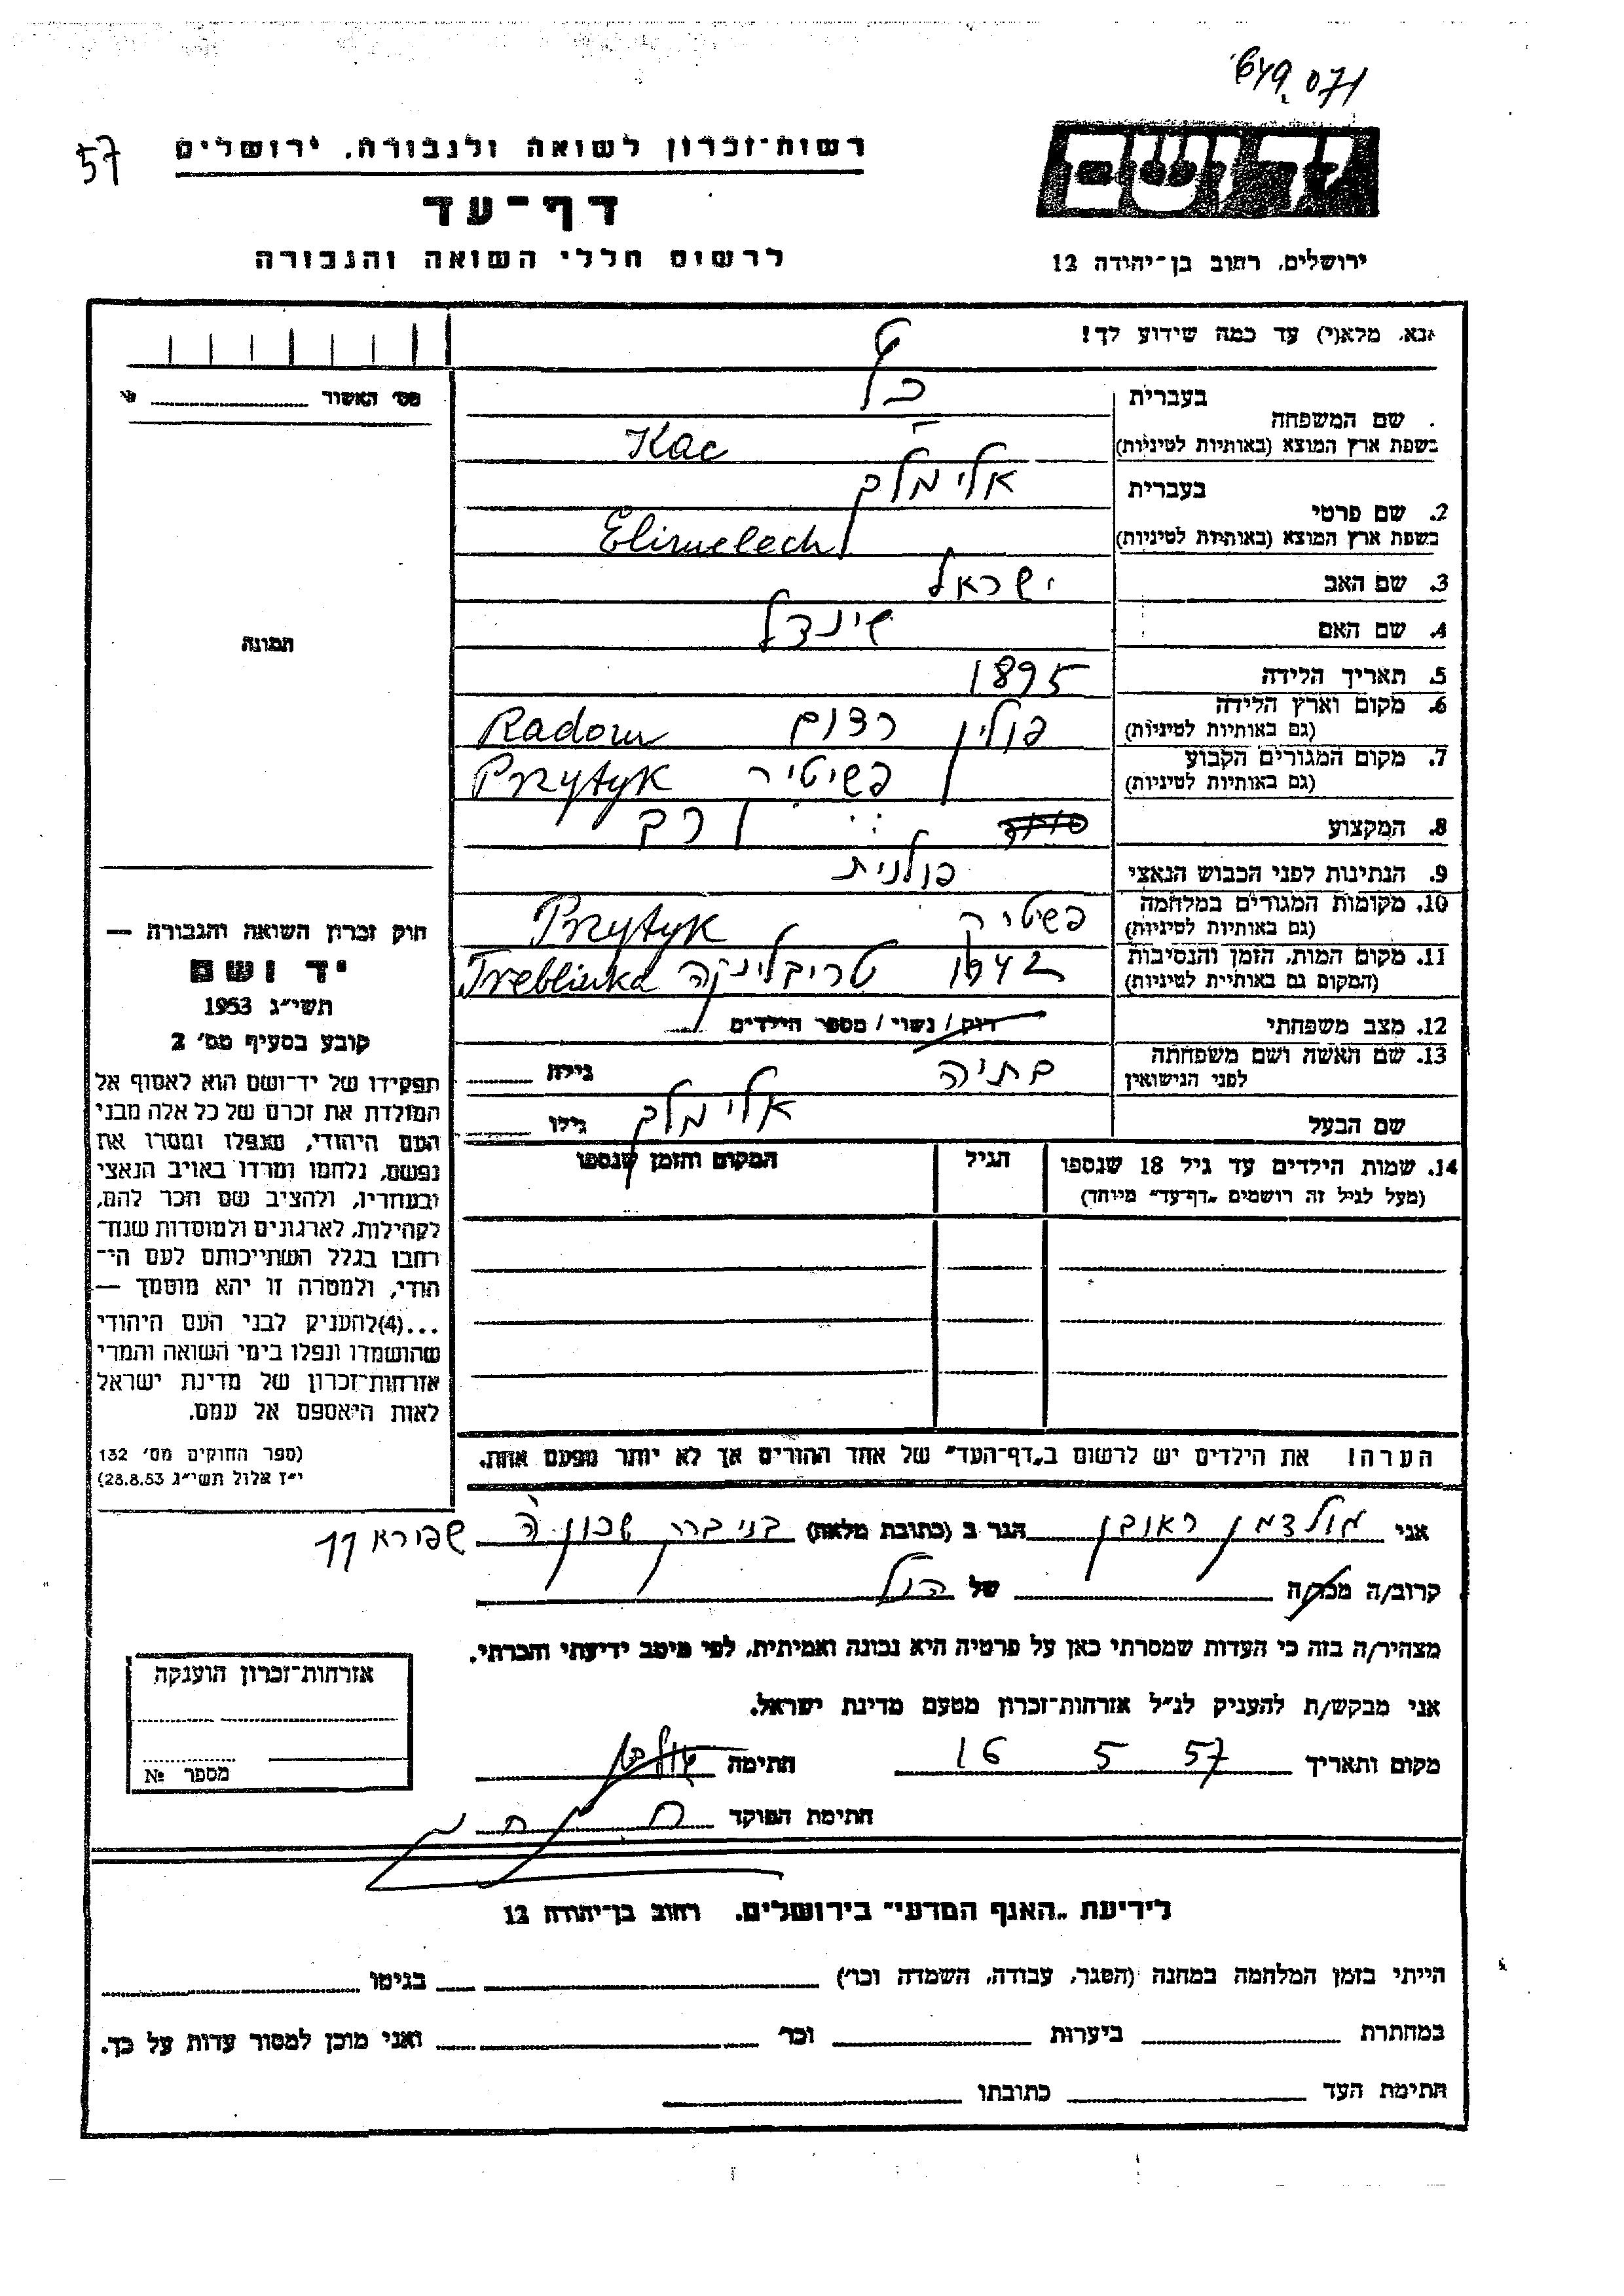 649.071
57
רשות-זכרון לשואה ולגבורה, ירושלים
דף-עד
לרשום חללי השואה והגבורה
ירושלים, רחוב בן-יהודה 12
נא, מלא(י) עד כמה שידוע לך!
מס' האשור
שם המשפחה בעברית כץ
בשפת ארץ המוצא (באותיות לטיניות) Kac
2. שם פרטי בעברית אלימלך
בשפת ארץ המוצא (באותיות לטיניות) Elimelech
3. שם האב ישראל
4. שם האם שינדל
תמונה
5. תאריך הלידה 1895
6. מקום וארץ הלידה (גם באותיות לטיניות) פולין רדום Radom
7. מקום המגורים הקבוע (גם באותיות לטיניות) פשיטיק Przytyk
8. המקצוע
9. הנתינות לפני הכבוש הנאצי פולנית
10. מקומות המגורים במלחמה (גם באותיות לטיניות) פשיטיק Przytyk
11. מקום המות, הזמן והנסיבות (המקום גם באותיות לטיניות) 1942 טריבלינקה Treblinka
12. מצב משפחתי רוק / נשוי / מספר הילדים
13. שם האשה ושם משפחתה לפני הנישואין בתיה גילה
שם הבעל אלימלך גילו
14. שמות הילדים עד גיל 18 שנספו הגיל המקום והזמן שנספו
(מעל לגיל זה רושמים "דף-עד" מיוחד)
חוק זכרון השואה והגבורה —
יד ושם
תשי"ג 1953
קובע בסעיף מס' 2
תפקידו של יד-ושם הוא לאסוף אל
המולדת את זכרם של כל אלה מבני
העם היהודי, שנפלו ומסרו את
נפשם, נלחמו ומרדו באויב הנאצי
ובעוזריו, ולהציב שם וזכר להם,
לקהילות, לארגונים ולמוסדות שנח-
רבו בגלל השתייכותם לעם הי-
הודי, ולמטרה זו יהא מוסמך —
...(4) להעניק לבני העם היהודי
שהושמדו ונפלו בימי השואה והמרי
אזרחות-זכרון של מדינת ישראל
לאות היאספם אל עמם.
(ספר החוקים מס' 132
י"ז אלול תשי"ג 28.8.53)
הערה! את הילדים יש לרשום ב"דף-העד" של אחד ההורים אך לא יותר מפעם אחת.
אני ראובן הגר ב (כתובת מלאה) בני ברק שכון ה'
קרוב/ה מכר/ה של הנ"ל
מצהיר/ה בזה כי העדות שמסרתי כאן על פרטיה היא נכונה ואמיתית, לפי מיטב ידיעתי והכרתי.
אני מבקש/ת להעניק לנ"ל אזרחות-זכרון מטעם מדינת ישראל.
מקום ותאריך 16 5 57 חתימה
חתימת הפוקד
אזרחות-זכרון הוענקה
מספר №
לידיעת "האגף המדעי" בירושלים. רחוב בן-יהודה 12
הייתי בזמן המלחמה במחנה (הסגר, עבודה, השמדה וכו') בגיטו
במחתרת ביערות וכו' ואני מוכן למסור עדות על כך.
חתימת העד כתובתו